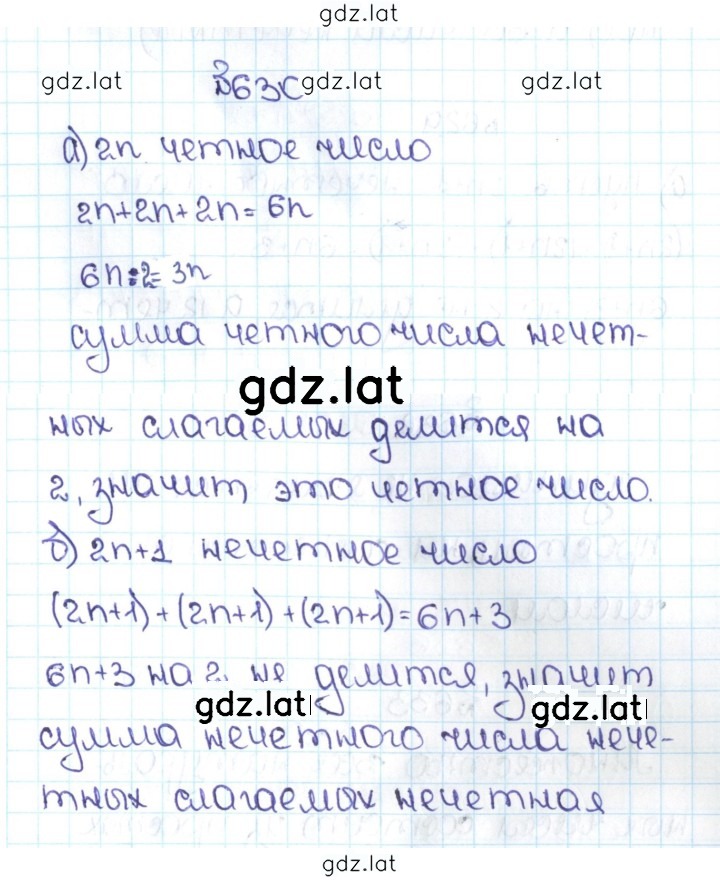 gdz.lat
gdz.lat gdz.lat gdz.lat
а) 2n четное число
2n+2n+2n=6n
6n:2=3n
сумма четного числа нечет-
gdz.lat
ных слагаемых делится на
2, значит это четное число.
б) 2n+1 нечетное число
(2n+1)+(2n+1)+(2n+1)=6n+3
6n+3 на 2 не делится, значит
gdz.lat gdz.lat
сумма нечетного числа нече-
тных слагаемых нечетная
gdz.lat